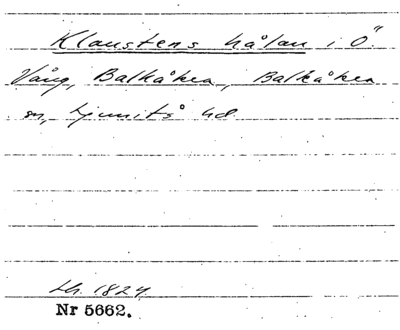 Klaustens hålan i Ö.
Vång, Balkåkra, Balkåkra
sn, Ljunits hd.
Lh. 1824.
Nr 5662.